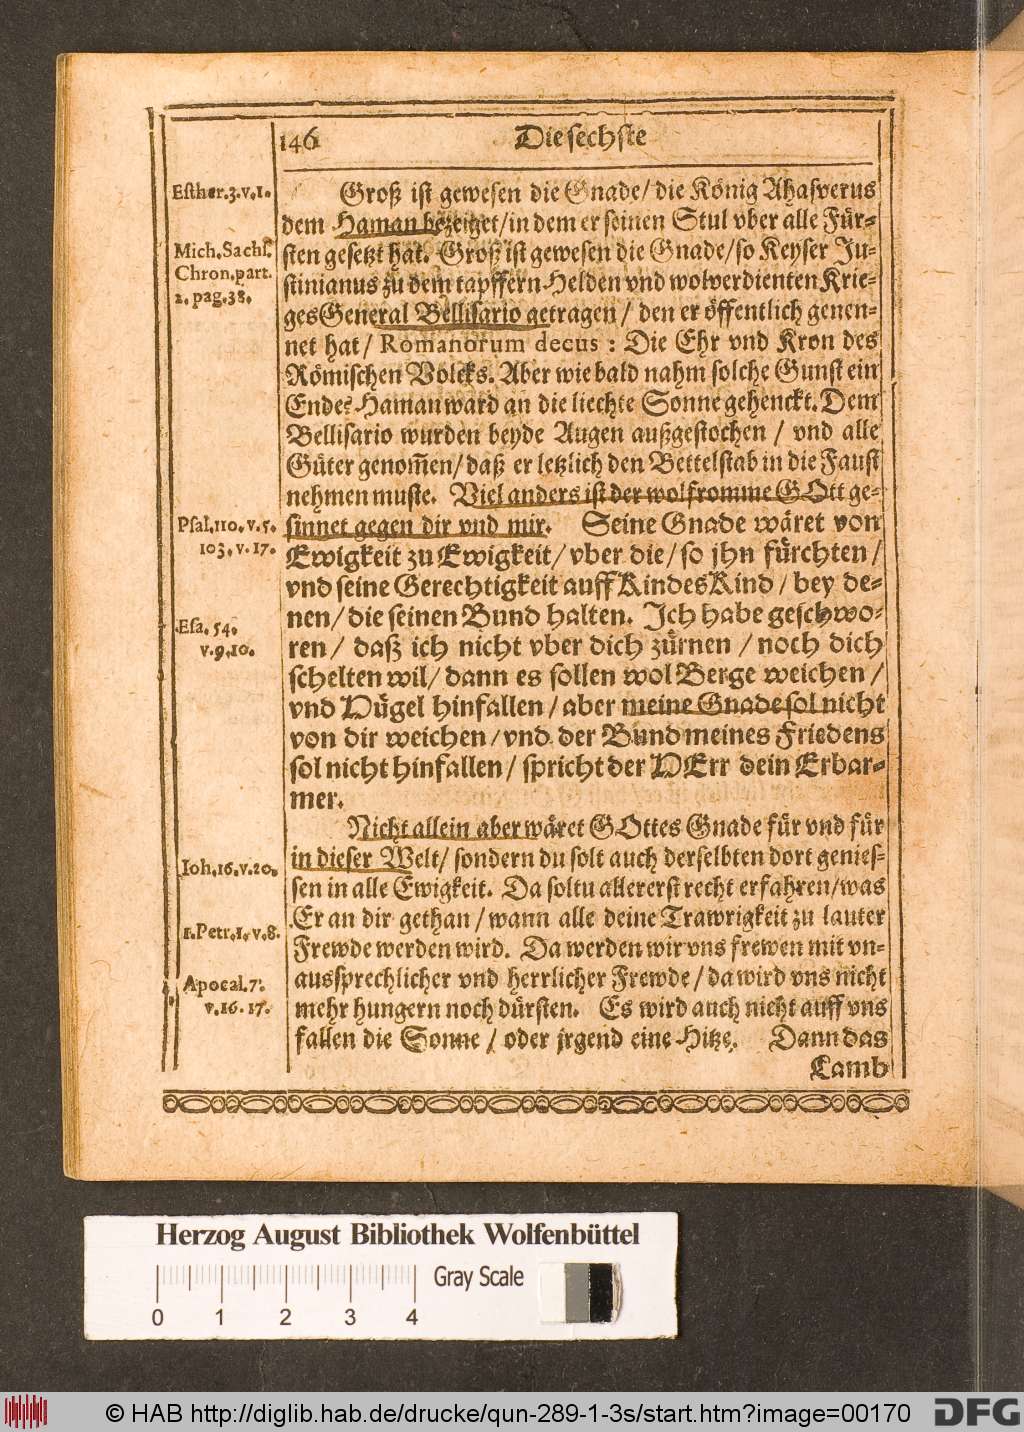 146 Die sechste
Esther.3.v.1.
Groß ist gewesen die Gnade/ die König Ahasverus
dem Haman bezeiget/ in dem er seinen Stul vber alle Für-
Mich. Sachs.
Chron. part.
2. pag. 38.
sten gesetzt hat. Groß ist gewesen die Gnade/ so Keyser Ju-
stinianus zu dem tapffern Helden vnd wolverdienten Krie-
ges General Bellisario getragen/ den er öffentlich genen-
net hat/ Romanorum decus : Die Ehr vnd Kron des
Römischen Volcks. Aber wie bald nahm solche Gunst ein
Ende? Haman ward an die liechte Sonne gehenckt. Dem
Bellisario wurden beyde Augen außgestochen / vnd alle
Güter genom̃en/ daß er letzlich den Bettelstab in die Faust
nehmen muste. Viel anders ist der wolfromme GOtt ge-
Psal. 110. v. 5.
103. v. 17.
sinnet gegen dir vnd mir. Seine Gnade wäret von
Ewigkeit zu Ewigkeit/ vber die/ so jhn fürchten/
vnd seine Gerechtigkeit auff Kindes Kind/ bey de-
nen/ die seinen Bund halten. Ich habe geschwo-
Esa. 54.
v. 9. 10.
ren/ daß ich nicht vber dich zürnen / noch dich
schelten wil/ dann es sollen wol Berge weichen/
vnd Hügel hinfallen/ aber meine Gnade sol nicht
von dir weichen/ vnd der Bund meines Friedens
sol nicht hinfallen/ spricht der HErr dein Erbar-
mer.
Nicht allein aber wäret GOttes Gnade für vnd für
Ioh. 16. v. 20.
in dieser Welt/ sondern du solt auch derselbten dort genies-
sen in alle Ewigkeit. Da soltu allererst recht erfahren/ was
Er an dir gethan/ wann alle deine Trawrigkeit zu lauter
1. Petr. 1. v. 8.
Frewde werden wird. Da werden wir vns frewen mit vn-
Apocal. 7.
v. 16. 17.
aussprechlicher vnd herrlicher Frewde/ da wird vns nicht
mehr hungern noch dürsten. Es wird auch nicht auff vns
fallen die Sonne / oder jrgend eine Hitze. Dann das
Lamb
Herzog August Bibliothek Wolfenbüttel
Gray Scale
0 1 2 3 4
© HAB http://diglib.hab.de/drucke/qun-289-1-3s/start.htm?image=00170 DFG